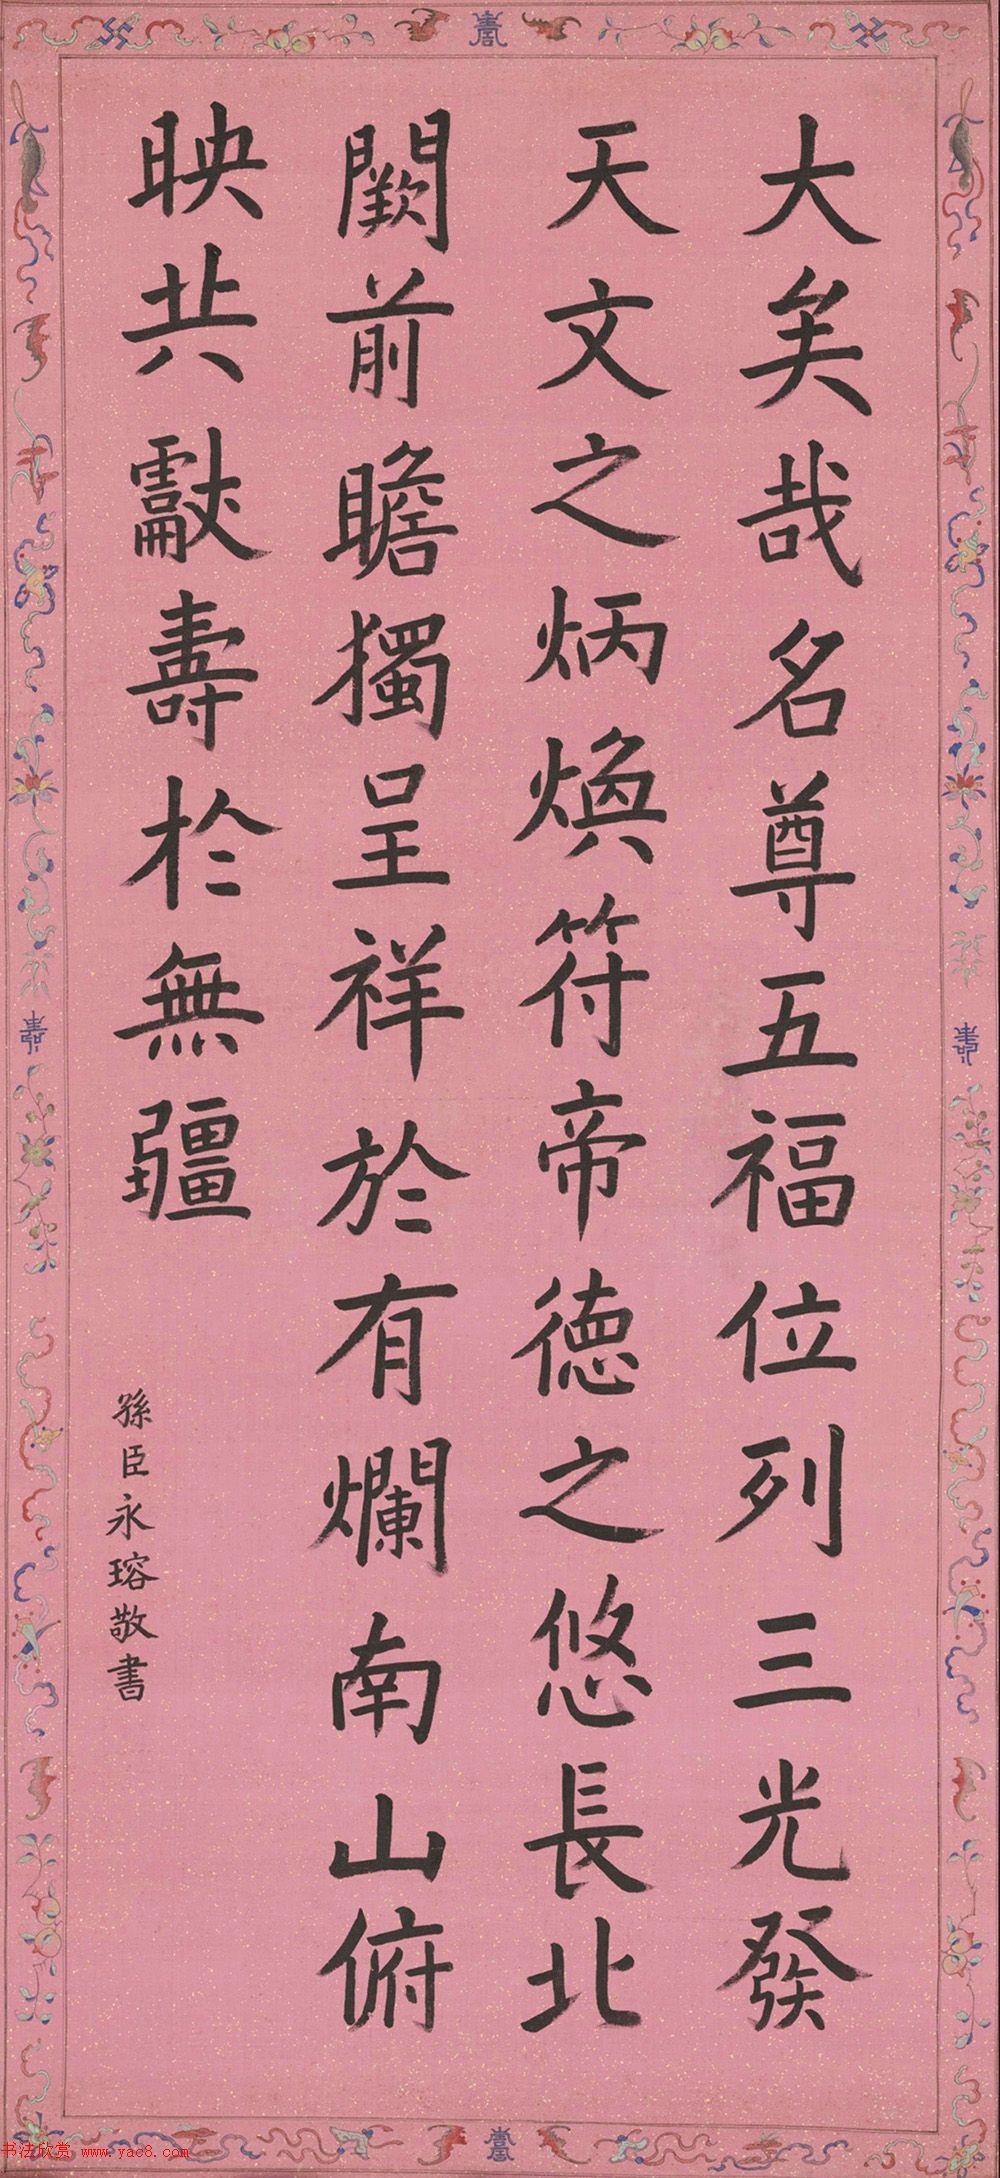 大矣哉名尊五福位列三光發
天文之炳煥符帝德之悠長北
闕前瞻獨呈祥於有爛南山俯
映共獻壽於無疆
孫臣永瑢敬書
书法欣赏 www.yac8.com